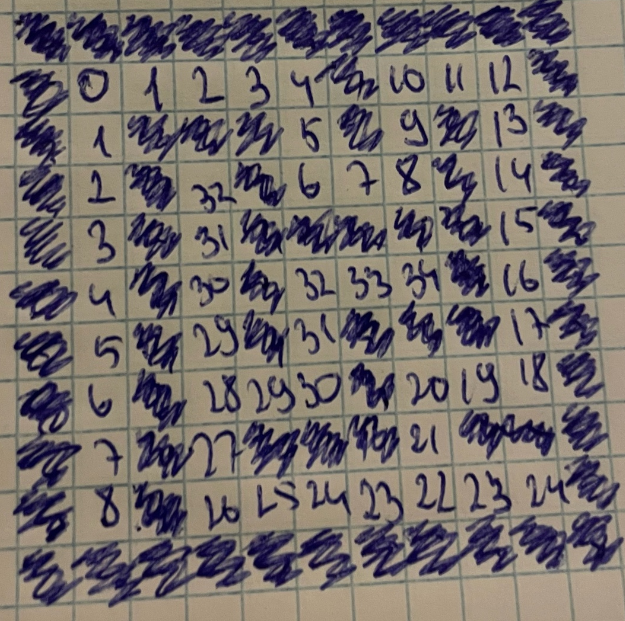 0 1 2 3 4 10 11 12
1 5 9 13
2 32 6 7 8 14
3 31 15
4 30 32 33 34 16
5 29 31 17
6 28 29 30 20 19 18
7 27 21
8 26 25 24 23 22 23 24